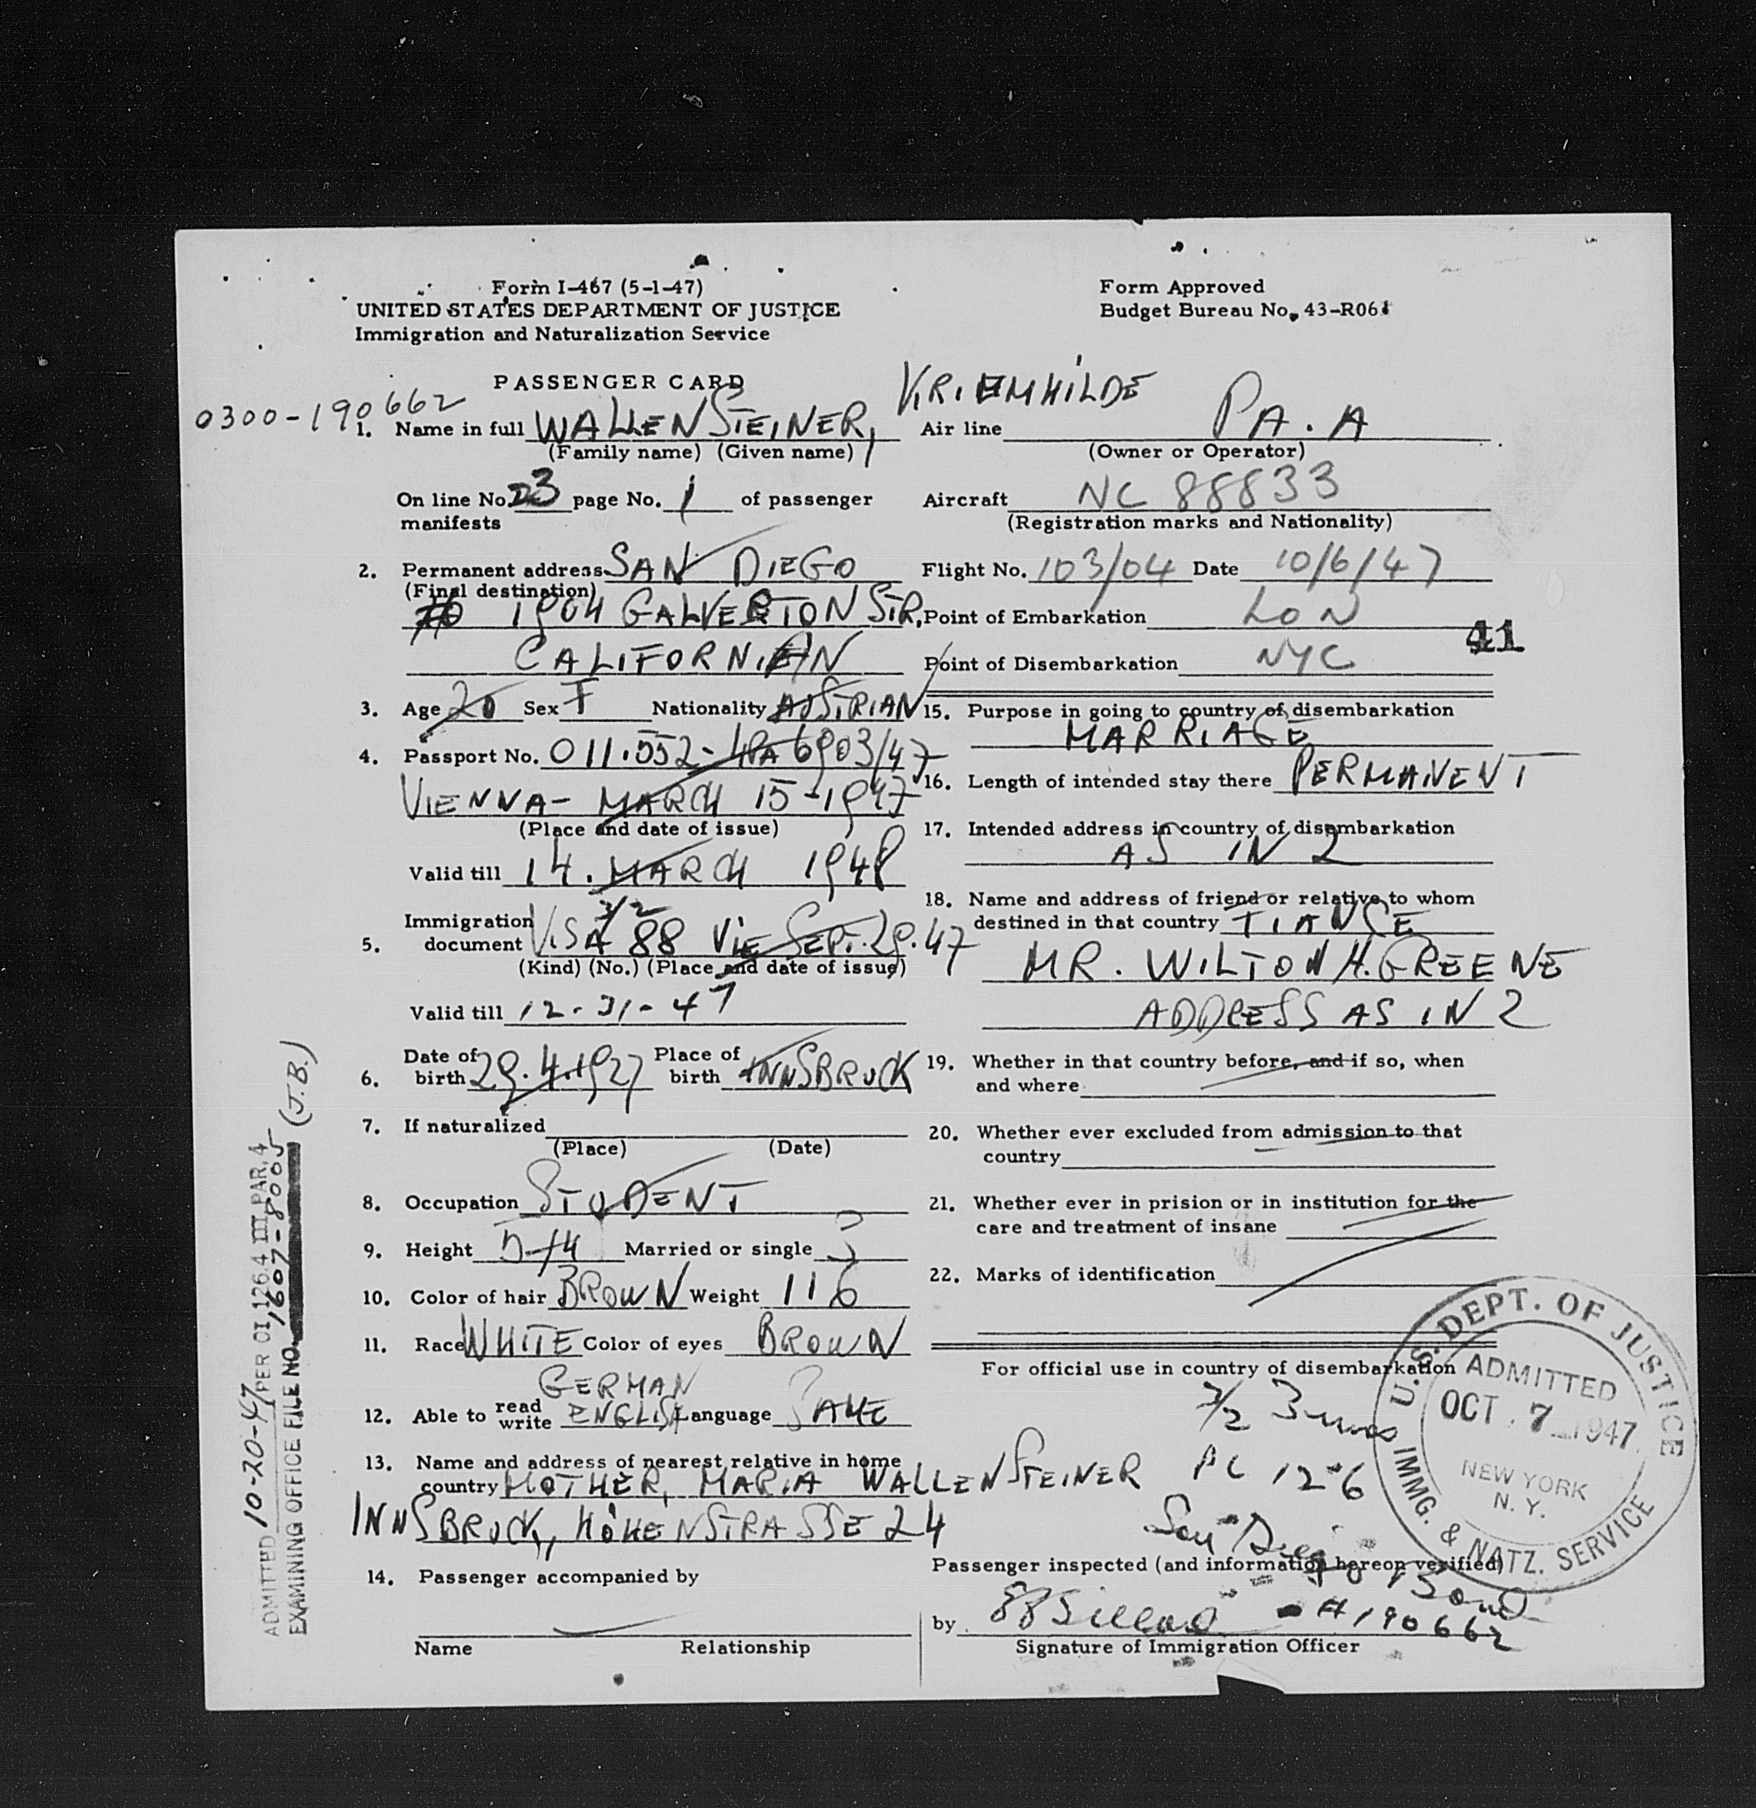 Form I-467 (5-1-47)
UNITED STATES DEPARTMENT OF JUSTICE
Immigration and Naturalization Service
Form Approved
Budget Bureau No. 43-R061
PASSENGER CARD
0300-190662
1. Name in full WALLENSTEINER, KRIEMHILDE
(Family name) (Given name)
On line No. 23 page No. 1 of passenger
manifests
2. Permanent address SAN DIEGO
(Final destination)
1904 GALVESTON STR,
CALIFORNIAN
3. Age 20 Sex F Nationality AUSTRIAN
4. Passport No. 011.552- 6903/47
VIENNA- MARCH 15-1947
(Place and date of issue)
Valid till 14. MARCH 1948
3/2
Immigration
5. document VISA 88 VIE SEPT. 29.47
(Kind) (No.) (Place and date of issue)
Valid till 12-31-47
6. Date of birth 29.4.1927 Place of birth INNSBRUCK
7. If naturalized
(Place) (Date)
8. Occupation STUDENT
9. Height 5-4 Married or single S
10. Color of hair BROWN Weight 116
11. Race WHITE Color of eyes BROWN
GERMAN
12. Able to read write ENGLISH Language SAME
13. Name and address of nearest relative in home
country MOTHER, MARIA WALLENSTEINER
INNSBRUCK, HÖHENSTRASSE 24
14. Passenger accompanied by
Name Relationship
Air line PA.A
(Owner or Operator)
Aircraft NC 88833
(Registration marks and Nationality)
Flight No. 103/04 Date 10/6/47
Point of Embarkation LON
41
Point of Disembarkation NYC
15. Purpose in going to country of disembarkation
MARRIAGE
16. Length of intended stay there PERMANENT
17. Intended address in country of disembarkation
AS IN 2
18. Name and address of friend or relative to whom
destined in that country FIANCE
MR. WILTON H. GREENE
ADDRESS AS IN 2
19. Whether in that country before, and if so, when
and where
20. Whether ever excluded from admission to that
country
21. Whether ever in prision or in institution for the
care and treatment of insane
22. Marks of identification
For official use in country of disembarkation
3/2
PC 1206
San Diego
Bond
Passenger inspected (and information hereon verified)
by
A190662
Signature of Immigration Officer
U.S. DEPT. OF JUSTICE
ADMITTED
OCT. 7 1947
NEW YORK
N. Y.
IMMG. & NATZ. SERVICE
ADMITTED 10-20-47 PER OI 126.4 III PAR. 4
EXAMINING OFFICE FILE NO. 1607-8005 (J.B.)